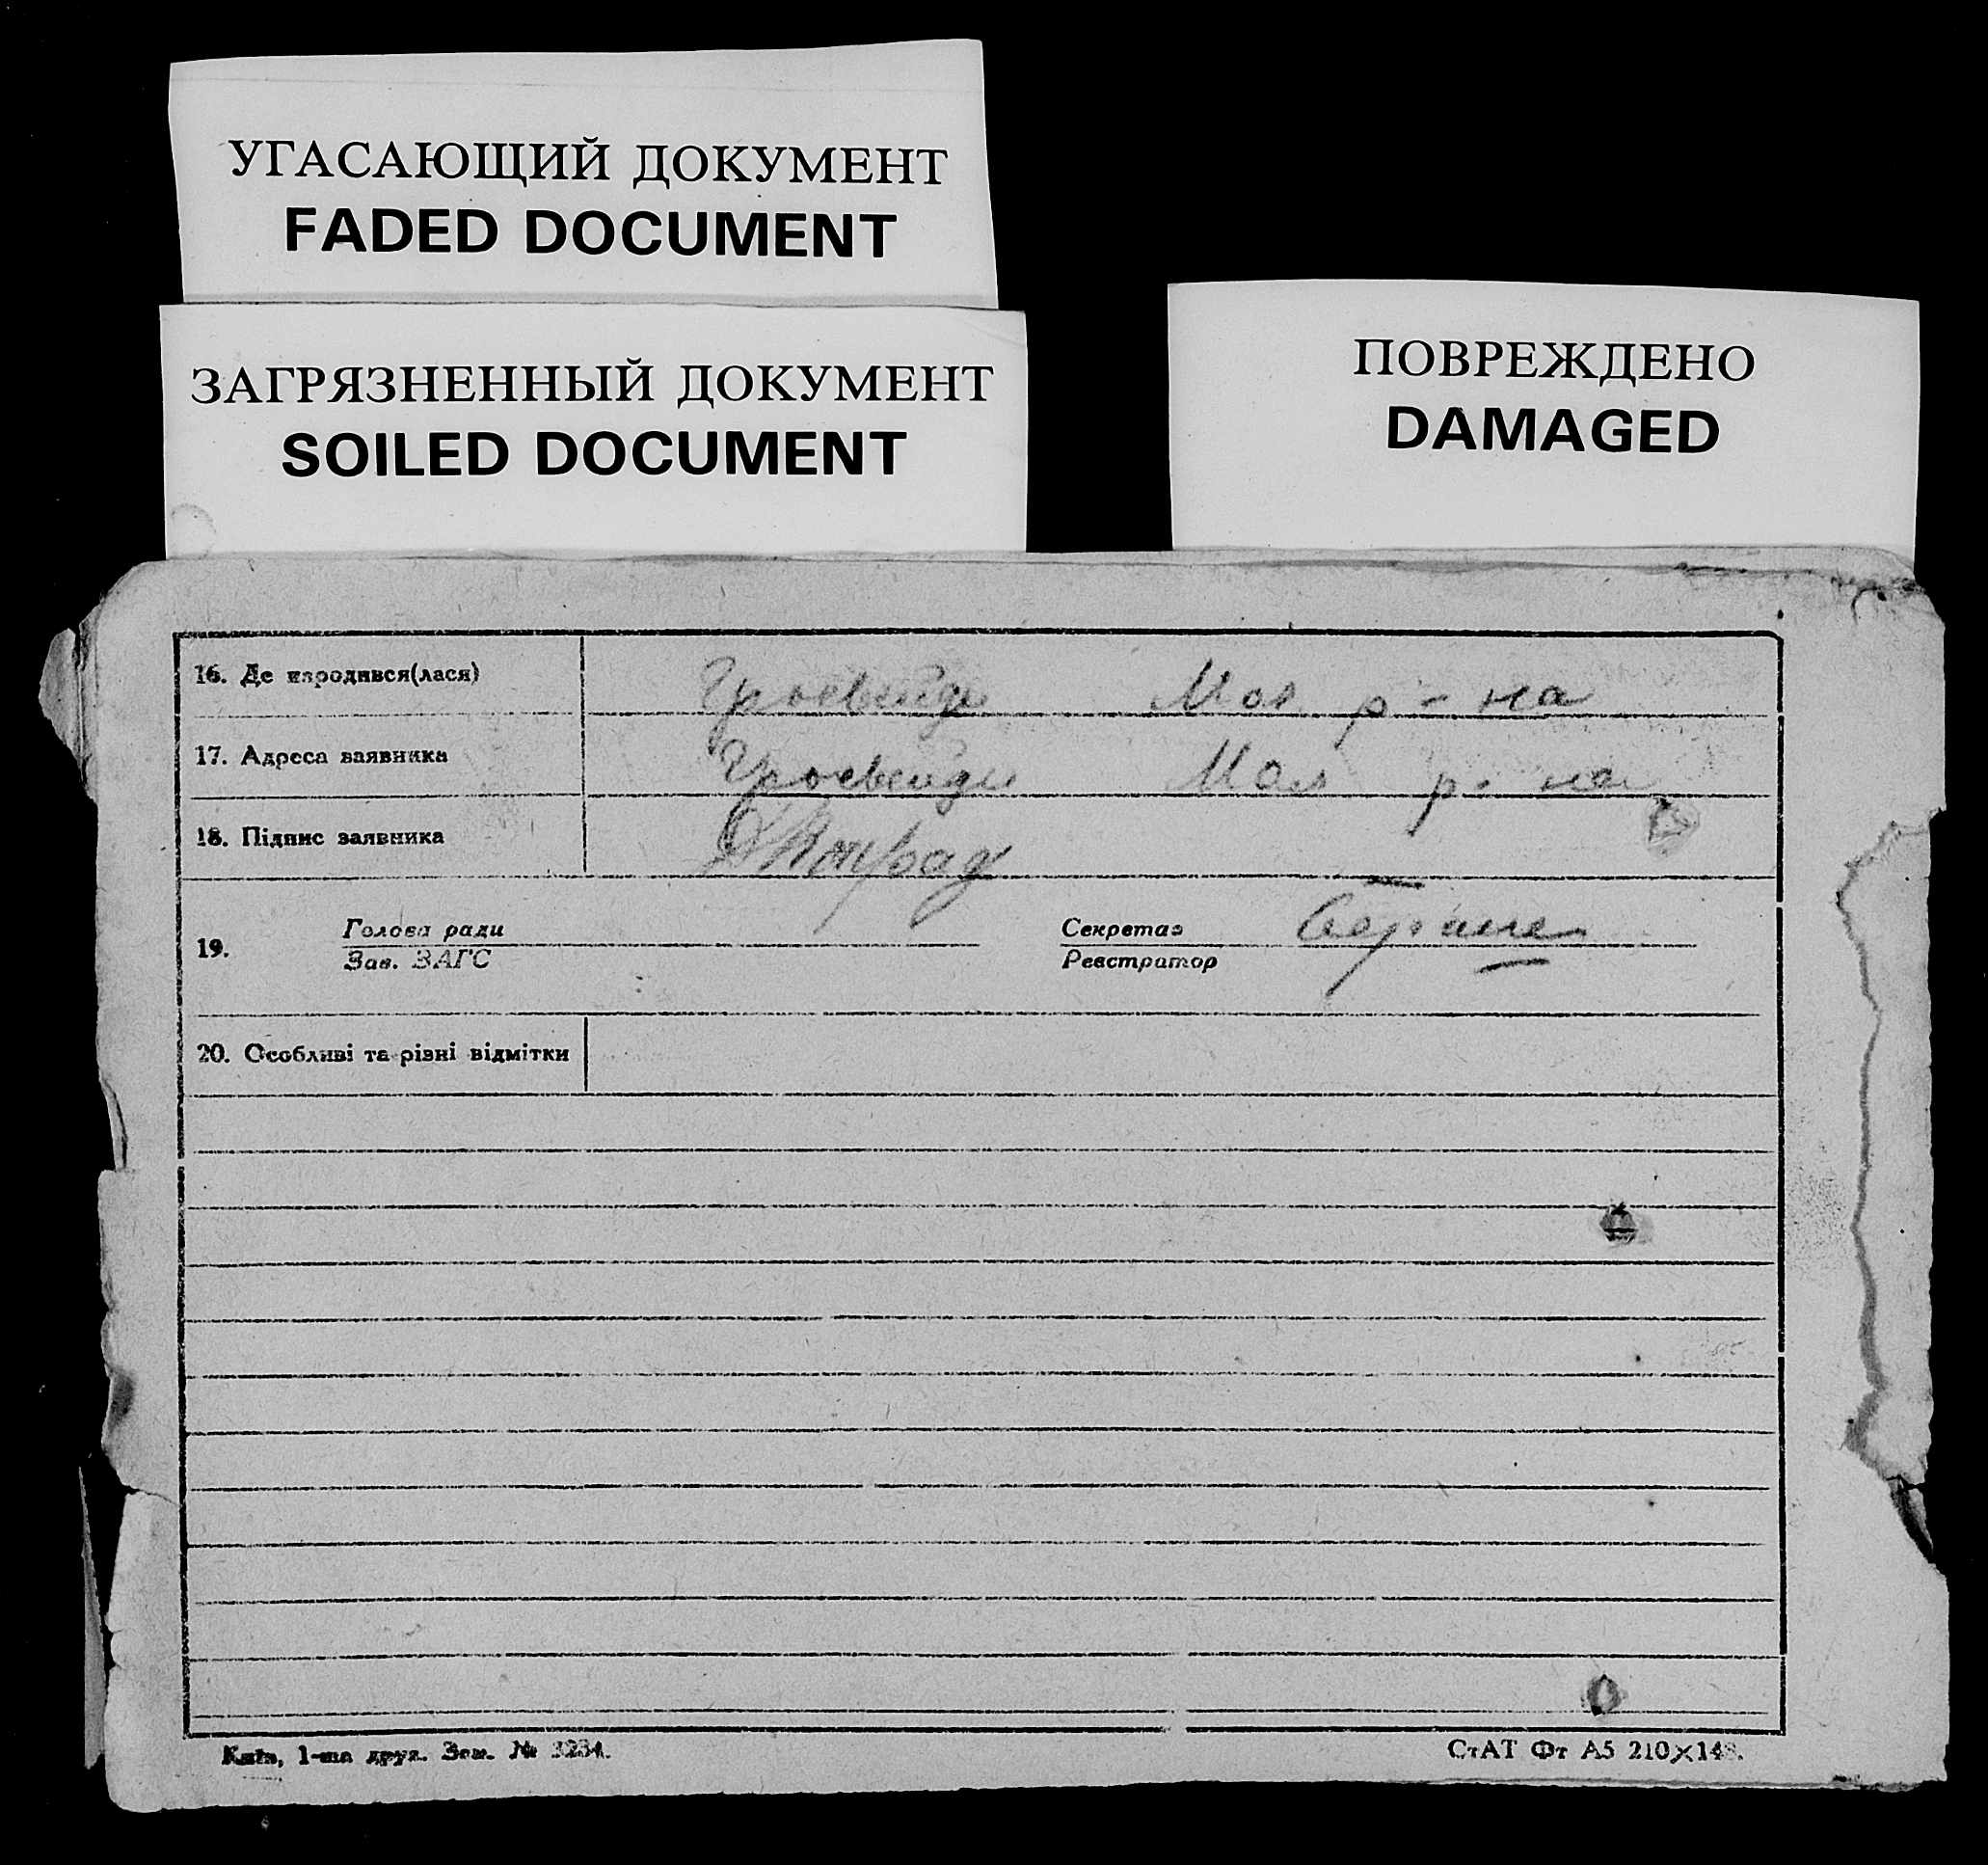 УГАСАЮЩИЙ ДОКУМЕНТ
FADED DOCUMENT
ЗАГРЯЗНЕННЫЙ ДОКУМЕНТ
SOILED DOCUMENT
ПОВРЕЖДЕНО
DAMAGED
16. Де народився(лася) Мол р-на
17. Адреса заявника Мол р-на
18. Підпис заявника
19. Голова ради Секретар
Зав. ЗАГС Реєстратор
20. Особливі та різні відмітки
Київ, 1-ша друк. Зам. № 3234. СтАТ Фт А5 210×148.